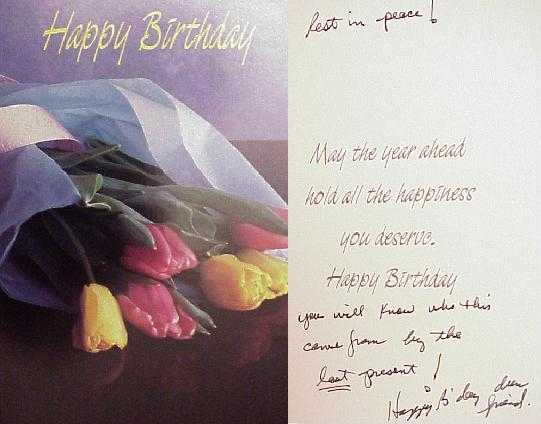 Happy Birthday
Rest in peace!
May the year ahead
hold all the happiness
you deserve.
Happy Birthday
you will know who this
came from by the
last present!
Happy B'day dear
friend.